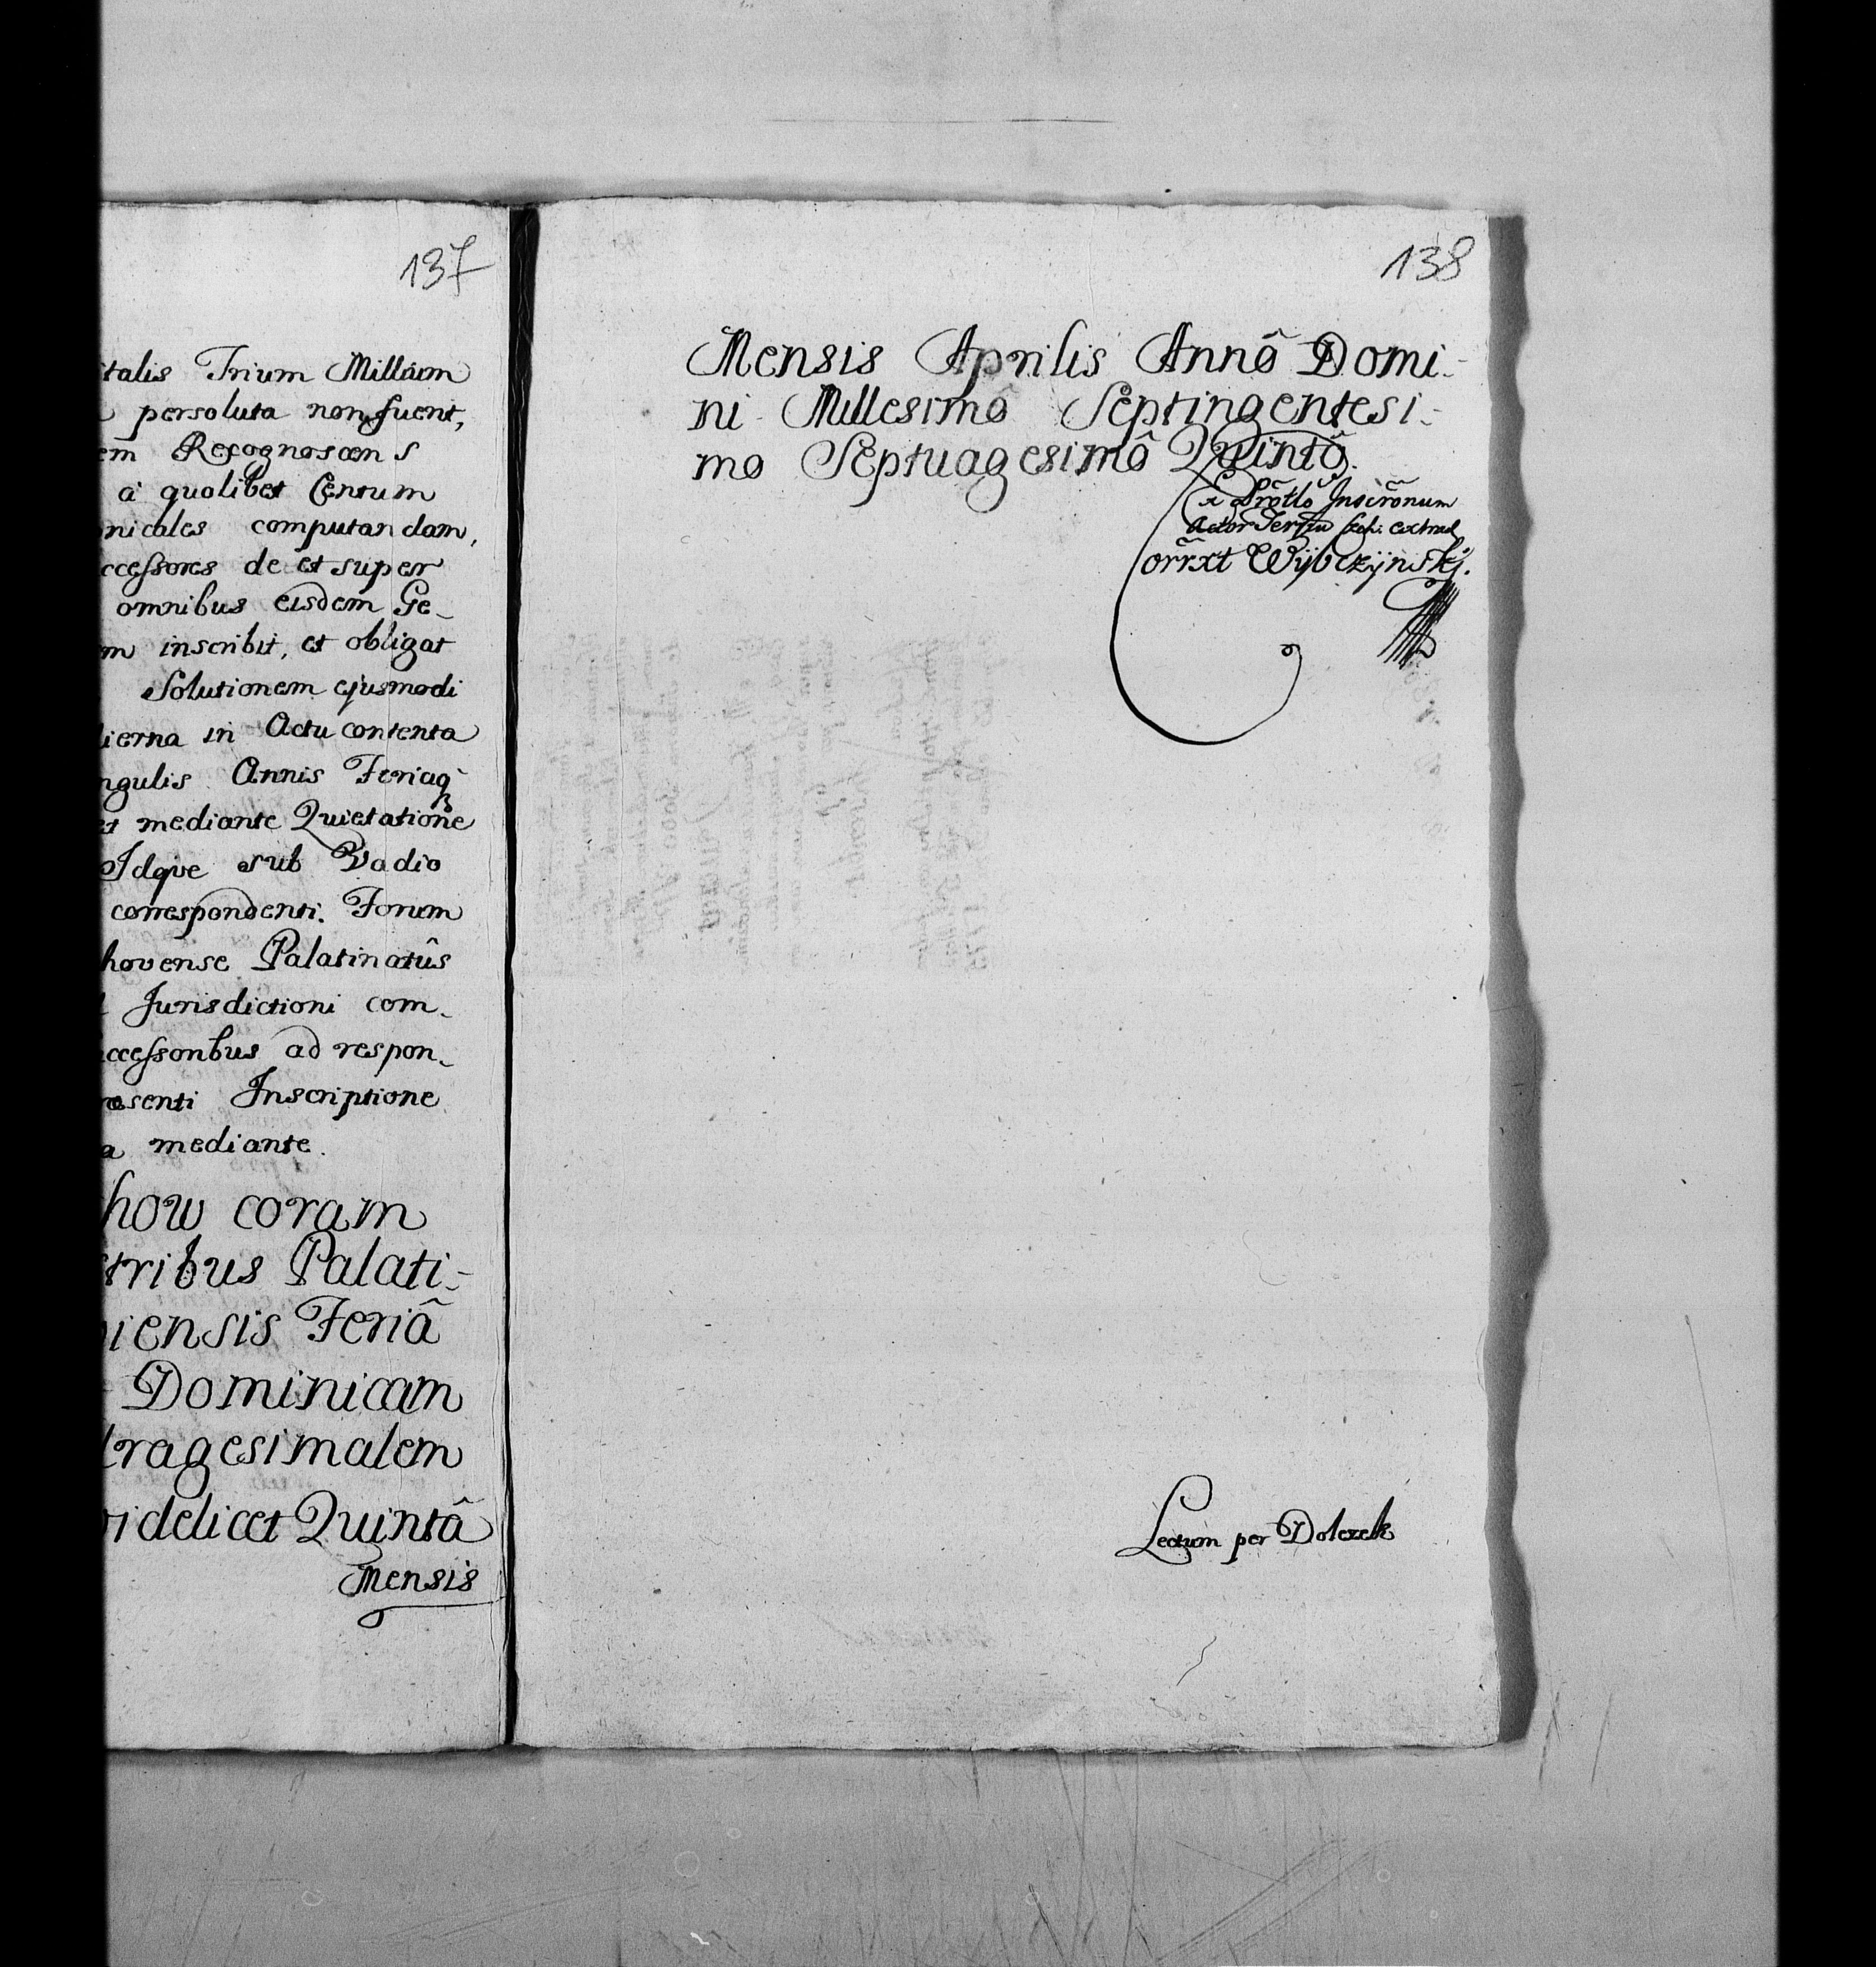 137
talis Trium Millium
persoluta non fuerit,
em Recognoscens
à quolibet Centum
nicales computandam,
ccessores de et super
omnibus eisdem Ge-
m inscribit, et obligat
Solutionem ejusmodi
ierna in Actu contenta
ngulis Annis Feriaq
et mediante Quietatione
Idque sub Vadio
correspondenti. Forum
hovense Palatinatûs
Jurisdictioni com-
ccessoribus ad respon-
senti Inscriptione
a mediante.
how coram
stribus Palati-
iensis Feriâ
Dominicam
ragesimalem
videlicet Quintâ
Mensis
138
Mensis Aprilis Annô Domi-
ni Millesimô Septingentesi-
mo Septuagesimô Quintô.
Ex Protlo Inscronum
extrad
corrxt Wybczynskj.
Lectum per Dolezek